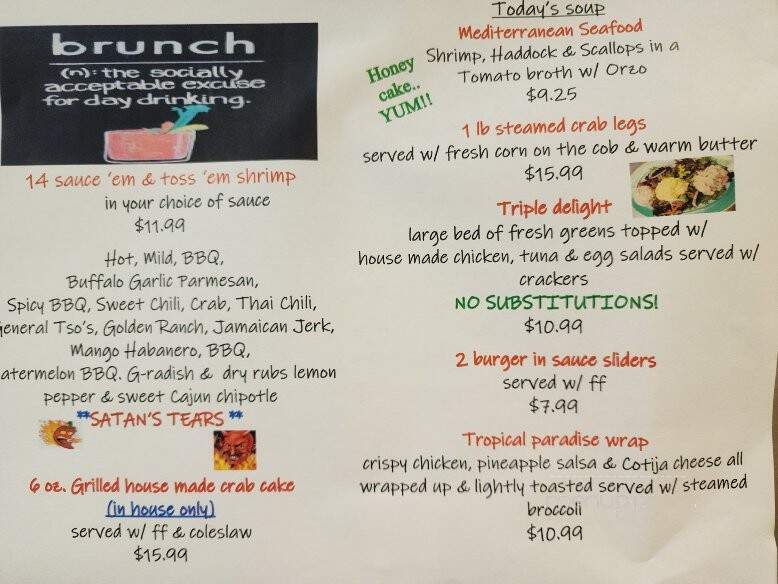 brunch
(n): the socially
acceptable excuse
for day drinking.
14 sauce 'em & toss 'em shrimp
in your choice of sauce
$11.99
Hot, Mild, BBQ,
Buffalo Garlic Parmesan,
Spicy BBQ, Sweet Chili, Crab, Thai Chili,
eneral Tso's, Golden Ranch, Jamaican Jerk,
Mango Habanero, BBQ,
atermelon BBQ. G-radish & dry rubs lemon
pepper & sweet Cajun chipotle
**SATAN'S TEARS **
6 oz. Grilled house made crab cake
(in house only)
served w/ ff & coleslaw
$15.99
Today's soup
Mediterranean Seafood
Shrimp, Haddock & Scallops in a
Tomato broth w/ Orzo
$9.25
Honey
cake..
YUM!!
1 lb steamed crab legs
served w/ fresh corn on the cob & warm butter
$15.99
Triple delight
large bed of fresh greens topped w/
house made chicken, tuna & egg salads served w/
crackers
NO SUBSTITUTIONS!
$10.99
2 burger in sauce sliders
served w/ ff
$7.99
Tropical paradise wrap
crispy chicken, pineapple salsa & Cotija cheese all
wrapped up & lightly toasted served w/ steamed
broccoli
$10.99